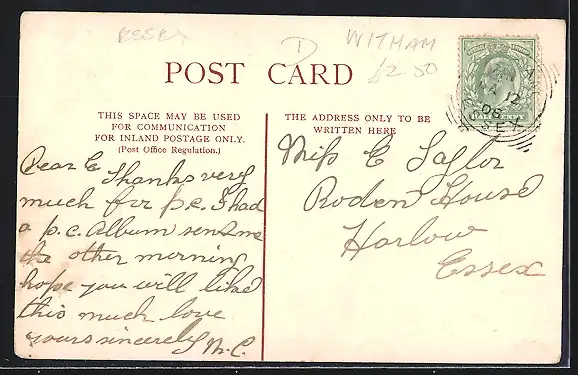 ESSEX
D
WITHAM
£2.50
POST CARD
THIS SPACE MAY BE USED
FOR COMMUNICATION
FOR INLAND POSTAGE ONLY.
(Post Office Regulation.)
THE ADDRESS ONLY TO BE
WRITTEN HERE
Dear E Thanks very
much for p.c. I had
a p.c. Album sent me
the other morning
hope you will like
this much love
yours sincerely M.C.
Miss E Taylor
Roden House
Harlow
Essex
12
06
ESSEX
HALFPENNY